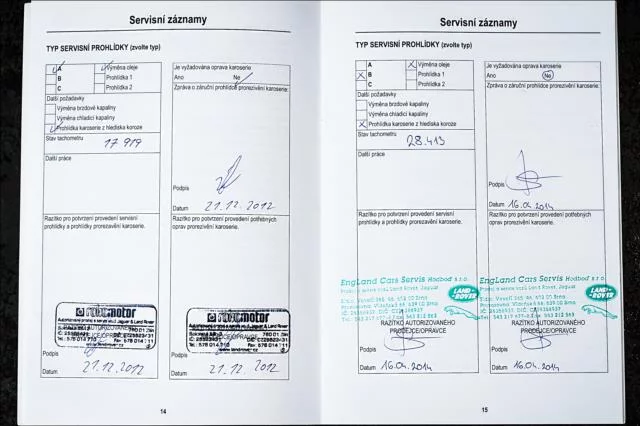 Servisní záznamy
TYP SERVISNÍ PROHLÍDKY (zvolte typ)
A
Výměna oleje
B
Prohlídka 1
C
Prohlídka 2
Další požadavky
Výměna brzdové kapaliny
Výměna chladicí kapaliny
Prohlídka karoserie z hlediska koroze
Stav tachometru
17 919
Další práce
Je vyžadována oprava karoserie
Ano
Ne
Zpráva o záruční prohlídce prorezivění karoserie:
Podpis
Datum 21.12.2012
Razítko pro potvrzení provedení servisní
prohlídky a prohlídky prorezavění karoserie.
Razítko pro potvrzení provedení potřebných
oprav prorezavění karoserie.
Autorizovaný prodej a servis vozů Jaguar & Land Rover
Podpis
Datum 21.12.2012
Podpis
Datum 21.12.2012
14
Servisní záznamy
TYP SERVISNÍ PROHLÍDKY (zvolte typ)
A
Výměna oleje
B
Prohlídka 1
C
Prohlídka 2
Další požadavky
Výměna brzdové kapaliny
Výměna chladicí kapaliny
Prohlídka karoserie z hlediska koroze
Stav tachometru
28.413
Další práce
Je vyžadována oprava karoserie
Ano
Ne
Zpráva o záruční prohlídce prorezivění karoserie:
Podpis
Datum 16.04.2014
Razítko pro potvrzení provedení servisní
prohlídky a prohlídky prorezavění karoserie.
Razítko pro potvrzení provedení potřebných
oprav prorezavění karoserie.
EngLand Cars Servis Hodboď s.r.o.
Prodej a servis vozů Land Rover, Jaguar
LAND ROVER
RAZÍTKO AUTORIZOVANÉHO
PRODEJCE/OPRAVCE
Podpis
Datum 16.04.2014
EngLand Cars Servis Hodboď s.r.o.
Prodej a servis vozů Land Rover, Jaguar
LAND ROVER
RAZÍTKO AUTORIZOVANÉHO
PRODEJCE/OPRAVCE
Podpis
Datum 16.04.2014
15